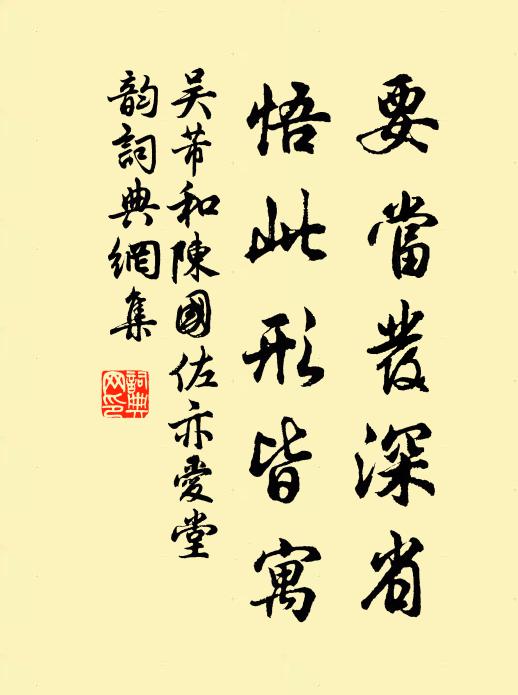 要當發深省
悟此形皆寓
吴芾和陳國佐亦愛堂
韵詞典網集
詞典
网印